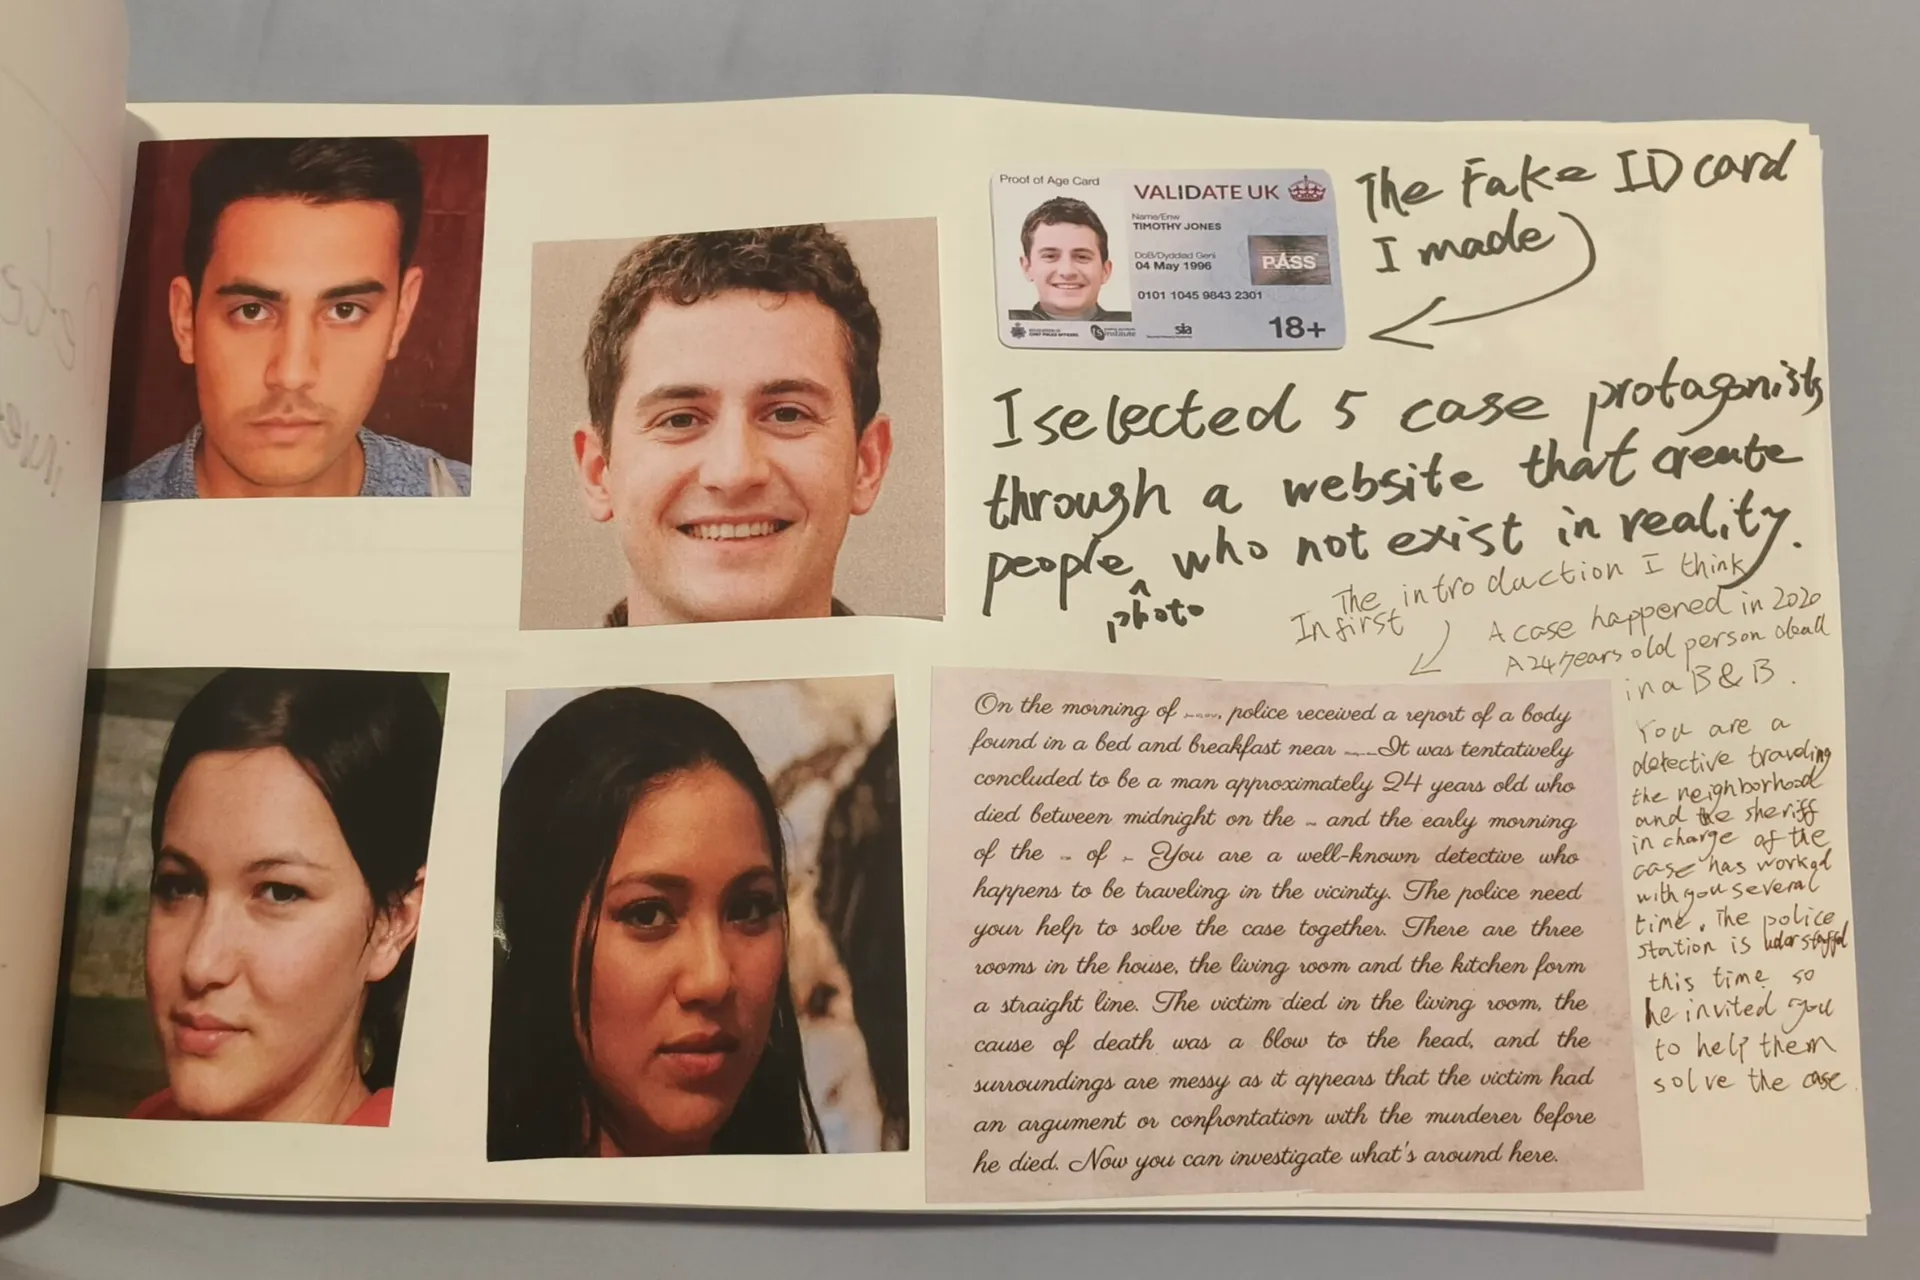 Proof of Age Card
VALIDATE UK
Name/Enw
TIMOTHY JONES
DoB/Dyddiad Geni
04 May 1996
PASS
0101 1045 9843 2301
institute
sia
18+
The Fake ID card
I made
I selected 5 case protagonists
through a website that create
people who not exist in reality.
photo
The introduction I think
In first
A case happened in 2020
A 24 years old person dead
in a B & B.
On the morning of police received a report of a body
found in a bed and breakfast near It was tentatively
concluded to be a man approximately 24 years old who
died between midnight on the and the early morning
of the of You are a well-known detective who
happens to be traveling in the vicinity. The police need
your help to solve the case together. There are three
rooms in the house, the living room and the kitchen form
a straight line. The victim died in the living room, the
cause of death was a blow to the head, and the
surroundings are messy as it appears that the victim had
an argument or confrontation with the murderer before
he died. Now you can investigate what's around here.
You are a
detective traveling
the neighborhood
and the sheriff
in charge of the
case has worked
with you several
time. The police
station is
this time so
he invited you
to help them
solve the case